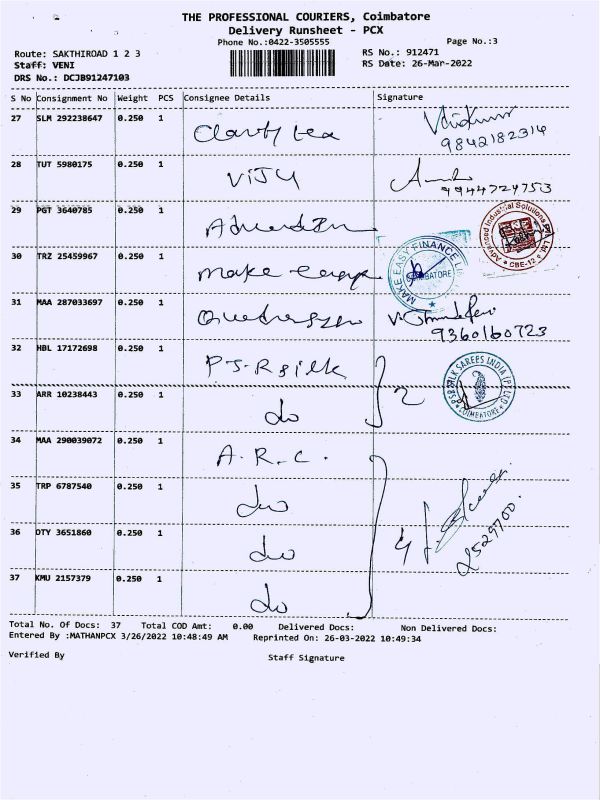 THE PROFESSIONAL COURIERS, Coimbatore
Delivery Runsheet - PCX
Phone No.:0422-3505555
Page No.:3
Route: SAKTHIROAD 1 2 3
RS No.: 912471
Staff: VENI
RS Date: 26-Mar-2022
DRS No.: DCJB91247103
S No Consignment No Weight PCS Consignee Details Signature
27 SLM 292238647 0.250 1
9842182314
28 TUT 5980175 0.250 1 VIJY
9944724753
29 PGT 3640785 0.250 1
Advanced Industrial Solutions
CBE-12
30 TRZ 25459967 0.250 1 make
MAKE EASY FINANCE
COIMBATORE
31 MAA 287033697 0.250 1
9360160723
32 HBL 17172698 0.250 1 PS.R silk
2
PSR SILK SAREES INDIA (P) LTD
COIMBATORE
33 ARR 10238443 0.250 1 do
34 MAA 290039072 0.250 1 A.R.C.
35 TRP 6787540 0.250 1 do
4
2529700.
36 OTY 3651860 0.250 1 do
37 KMU 2157379 0.250 1 do
Total No. Of Docs: 37 Total COD Amt: 0.00 Delivered Docs: Non Delivered Docs:
Entered By :MATHANPCX 3/26/2022 10:48:49 AM Reprinted On: 26-03-2022 10:49:34
Verified By Staff Signature